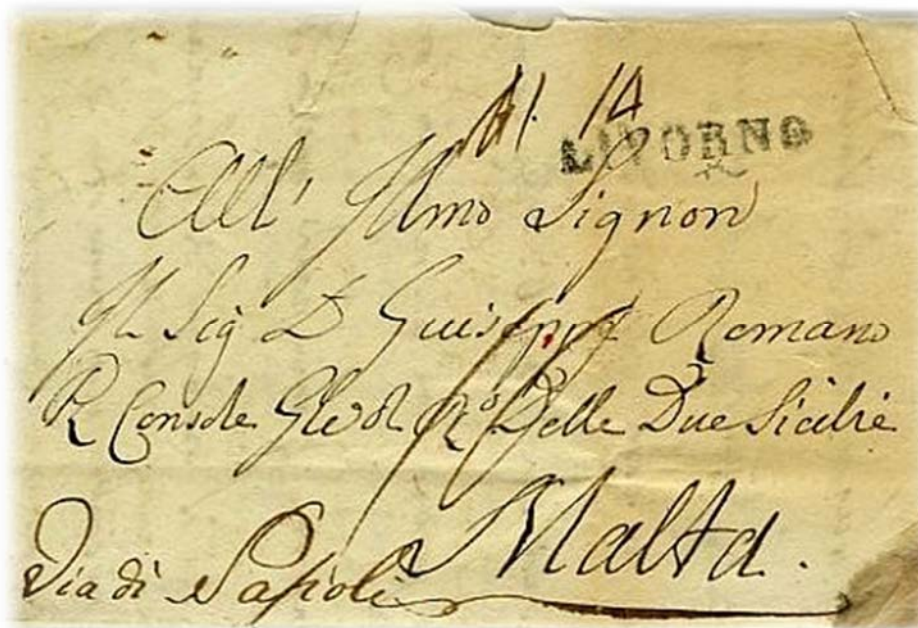 N. 14
LIVORNO
All' Illmo Signor
Il Sig D Guiseppe Romano
R Console Gle del R.º Delle Due Sicilie
Malta.
Via di Napoli